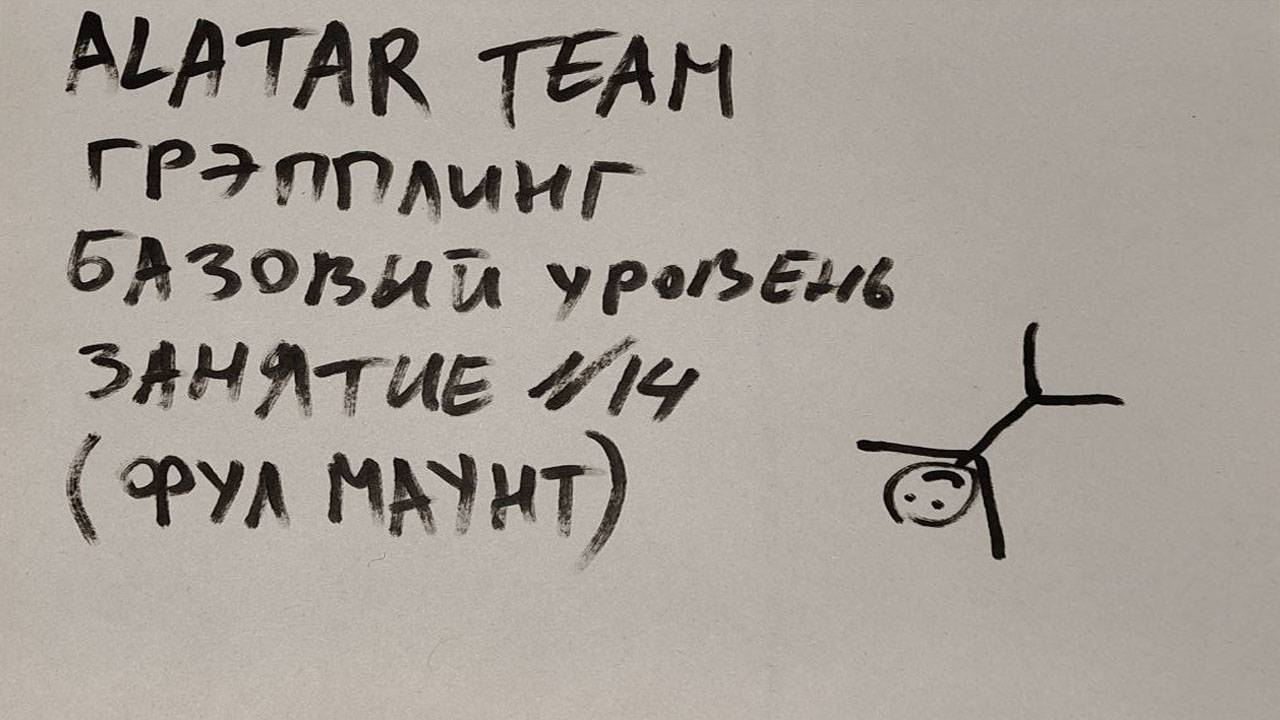 ALATAR TEAM
ГРЭППЛИНГ
БАЗОВЫЙ УРОВЕНЬ
ЗАНЯТИЕ №14
(ФУЛ МАУНТ)